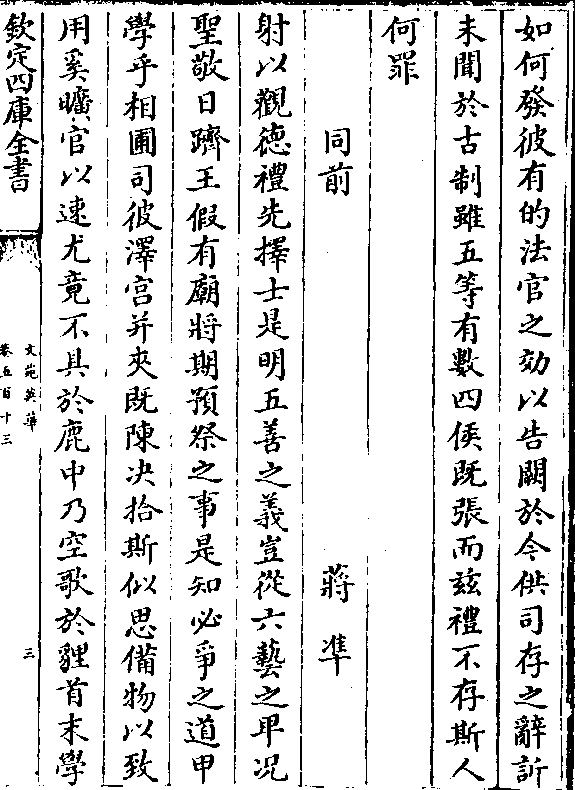 如何發彼有的法官之効以告闕於令供司存之辭訢
未聞於古制雖五等有數四侯既張而兹禮不存斯人
何罪
同前 蔣凖
射以觀德禮先擇士是明五善之義豈從六藝之卑况
聖敬日躋王假有廟將期預祭之事是知必爭之道甲
學乎相圃司彼澤宫并夾既陳决拾斯似思備物以致
用奚曠官以速尤竟不具於鹿中乃空歌於貍首末學
欽定四庫全書
文苑英華
卷五百十三
三